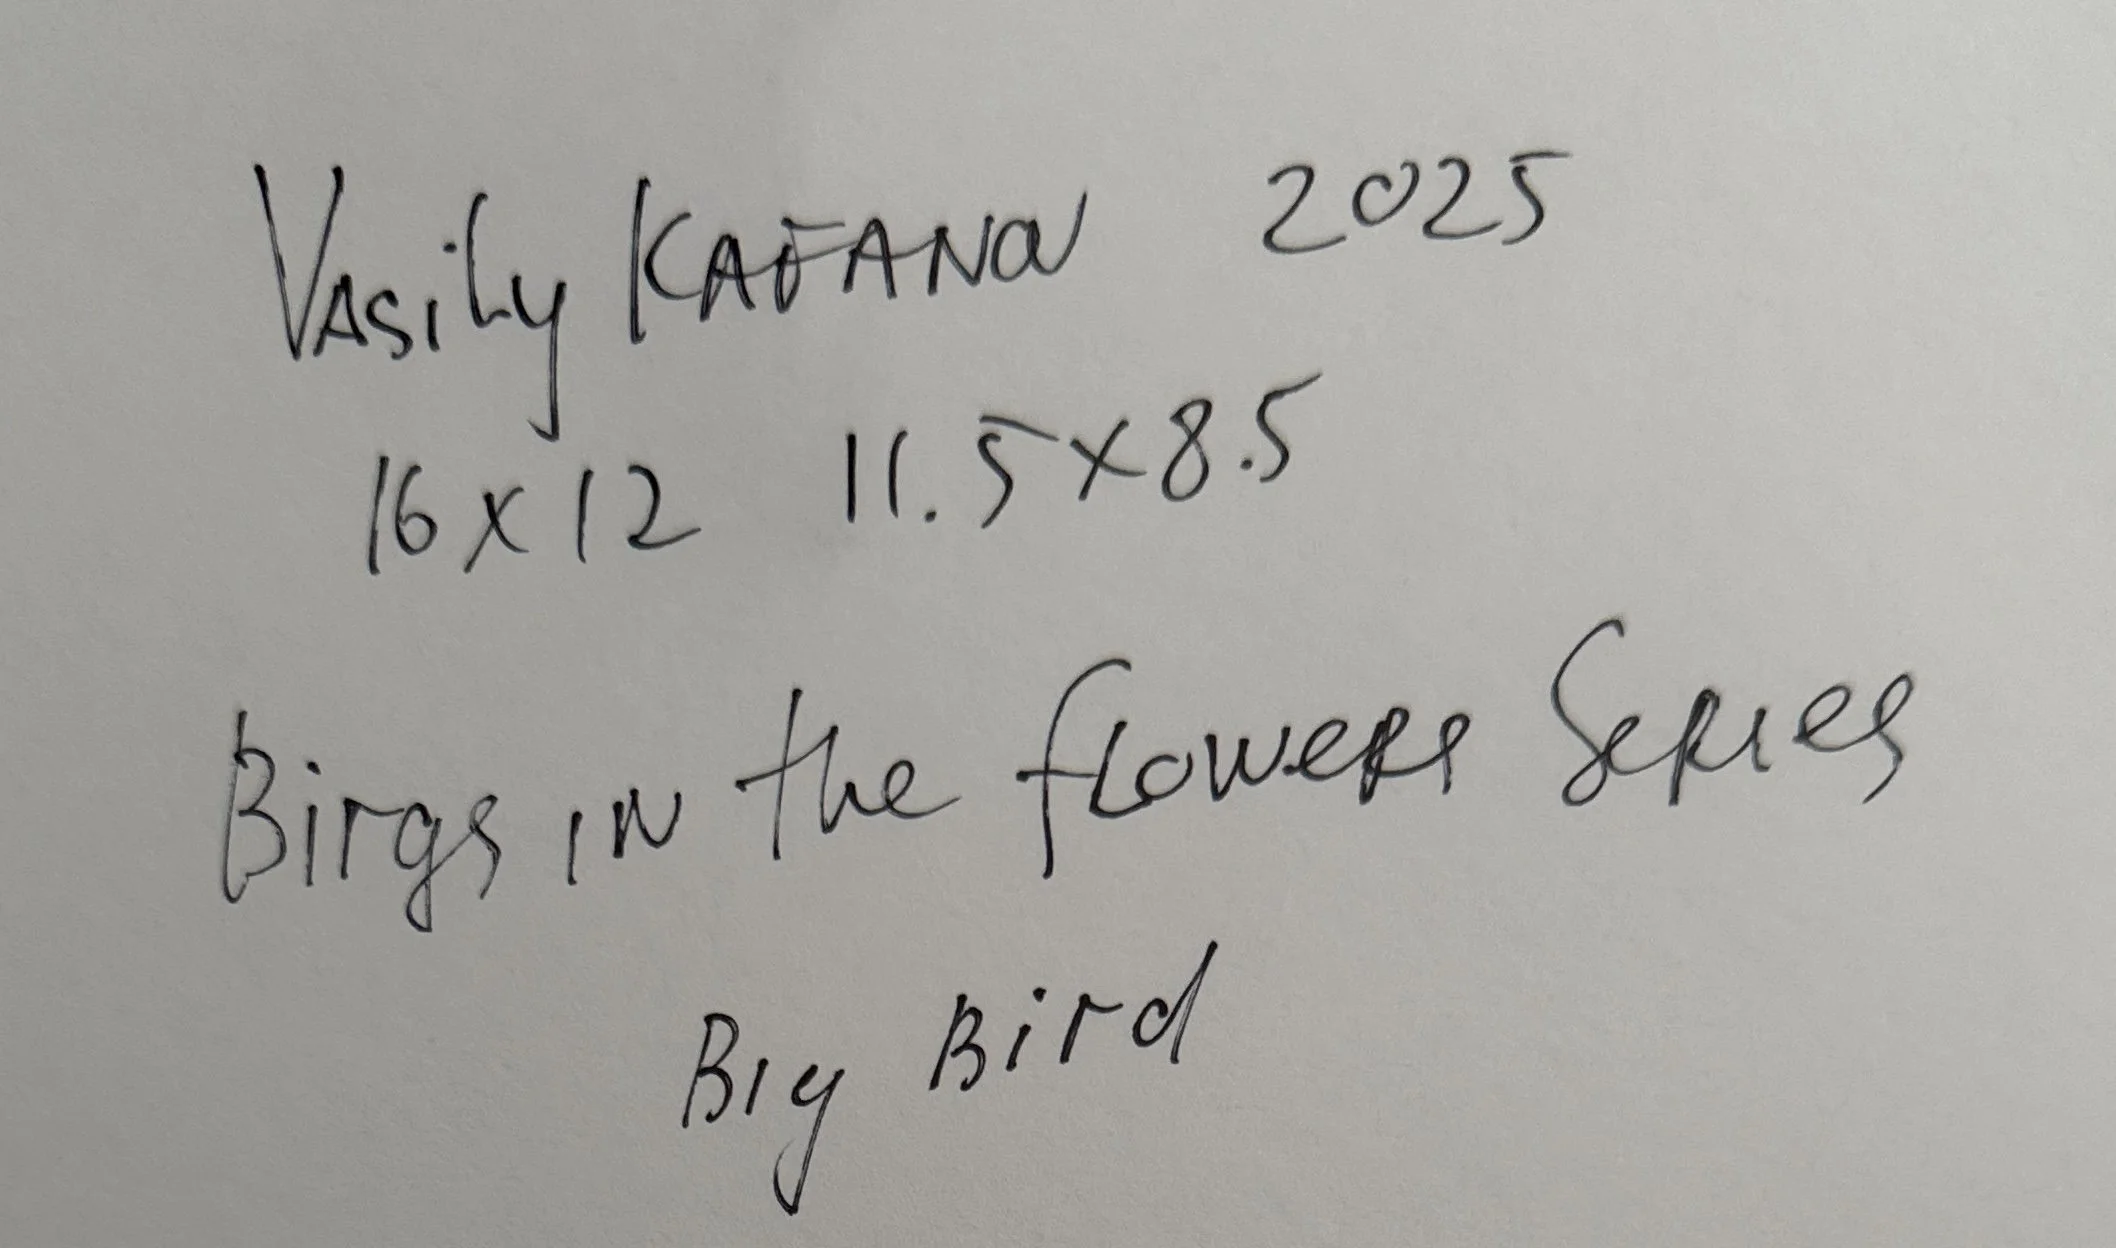 Vasily KAFANOV 2025
16 x 12 11.5 x 8.5
Birgs in the flowers Series
Big Bird